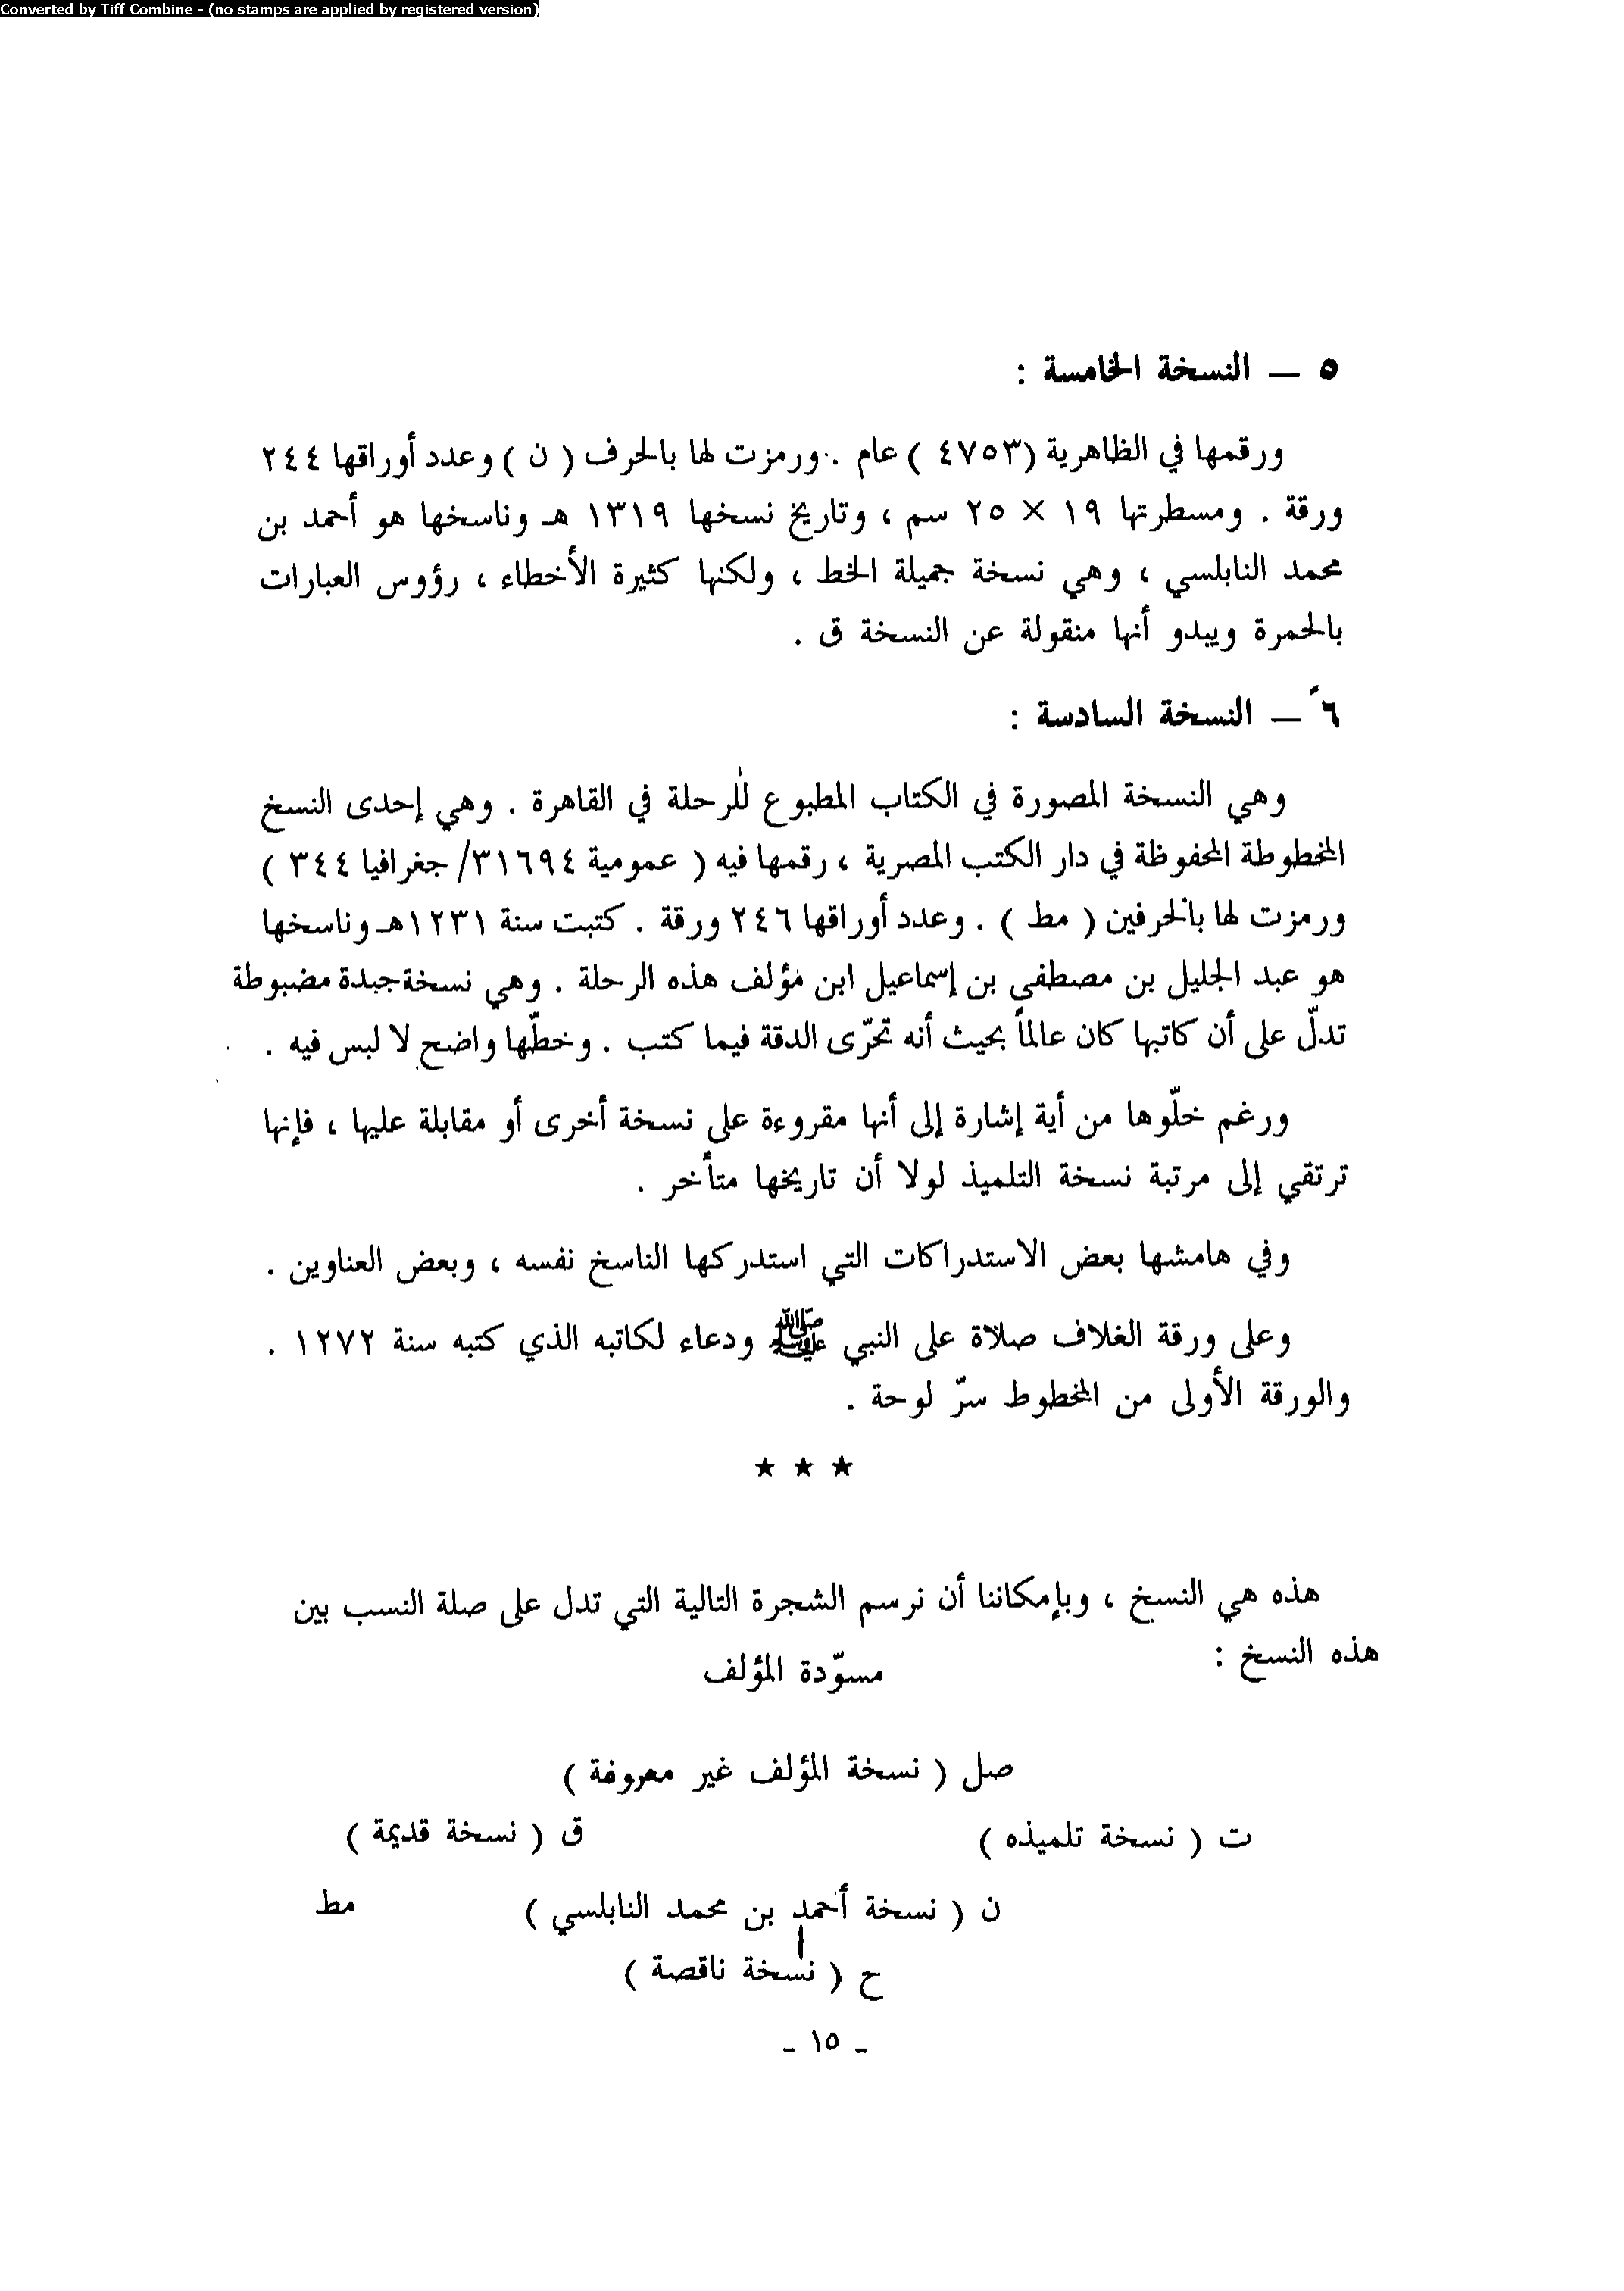 Converted by Tiff Combine - (no stamps are applied by registered version)
٥ — النسخة الخامسة :
ورقمها في الظاهرية (٤٧٥٣ ) عام . ورمزت لها بالحرف ( ن ) وعدد أوراقها ٢٤٤
ورقة . ومسطرتها ١٩ × ٢٥ سم ، وتاريخ نسخها ١٣١٩ هـ وناسخها هو أحمد بن
محمد النابلسي ، وهي نسخة جميلة الخط ، ولكنها كثيرة الأخطاء ، رؤوس العبارات
بالحمرة ويبدو أنها منقولة عن النسخة ق .
٦ً — النسخة السادسة :
وهي النسخة المصورة في الكتاب المطبوع للرحلة في القاهرة . وهي إحدى النسخ
المخطوطة المحفوظة في دار الكتب المصرية ، رقمها فيه ( عمومية ٣١٦٩٤/ جغرافيا ٣٤٤ )
ورمزت لها بالحرفين ( مط ) . وعدد أوراقها ٢٤٦ ورقة . كتبت سنة ١٢٣١هـ وناسخها
هو عبد الجليل بن مصطفى بن إسماعيل ابن مؤلف هذه الرحلة . وهي نسخة جبدة مضبوطة
تدلّ على أن كاتبها كان عالماً بحيث أنه تحرّى الدقة فيما كتب . وخطّها واضح لا لبس فيه .
ورغم خلّوها من أية إشارة إلى أنها مقروءة على نسخة أخرى أو مقابلة عليها ، فإنها
ترتقي إلى مرتبة نسخة التلميذ لولا أن تاريخها متأخر .
وفي هامشها بعض الاستدراكات التي استدركها الناسخ نفسه ، وبعض العناوين .
وعلى ورقة الغلاف صلاة على النبي ﷺ ودعاء لكاتبه الذي كتبه سنة ١٢٧٢ .
والورقة الأولى من المخطوط سرّ لوحة .
★ ★ ★
هذه هي النسخ ، وبإمكاننا أن نرسم الشجرة التالية التي تدل على صلة النسب بين
هذه النسخ :
مسوّدة المؤلف
صل ( نسخة المؤلف غير معروفة )
ت ( نسخة تلميذه ) ق ( نسخة قديمة )
ن ( نسخة أحمد بن محمد النابلسي ) مط
ح ( نسخة ناقصة )
- ١٥ -